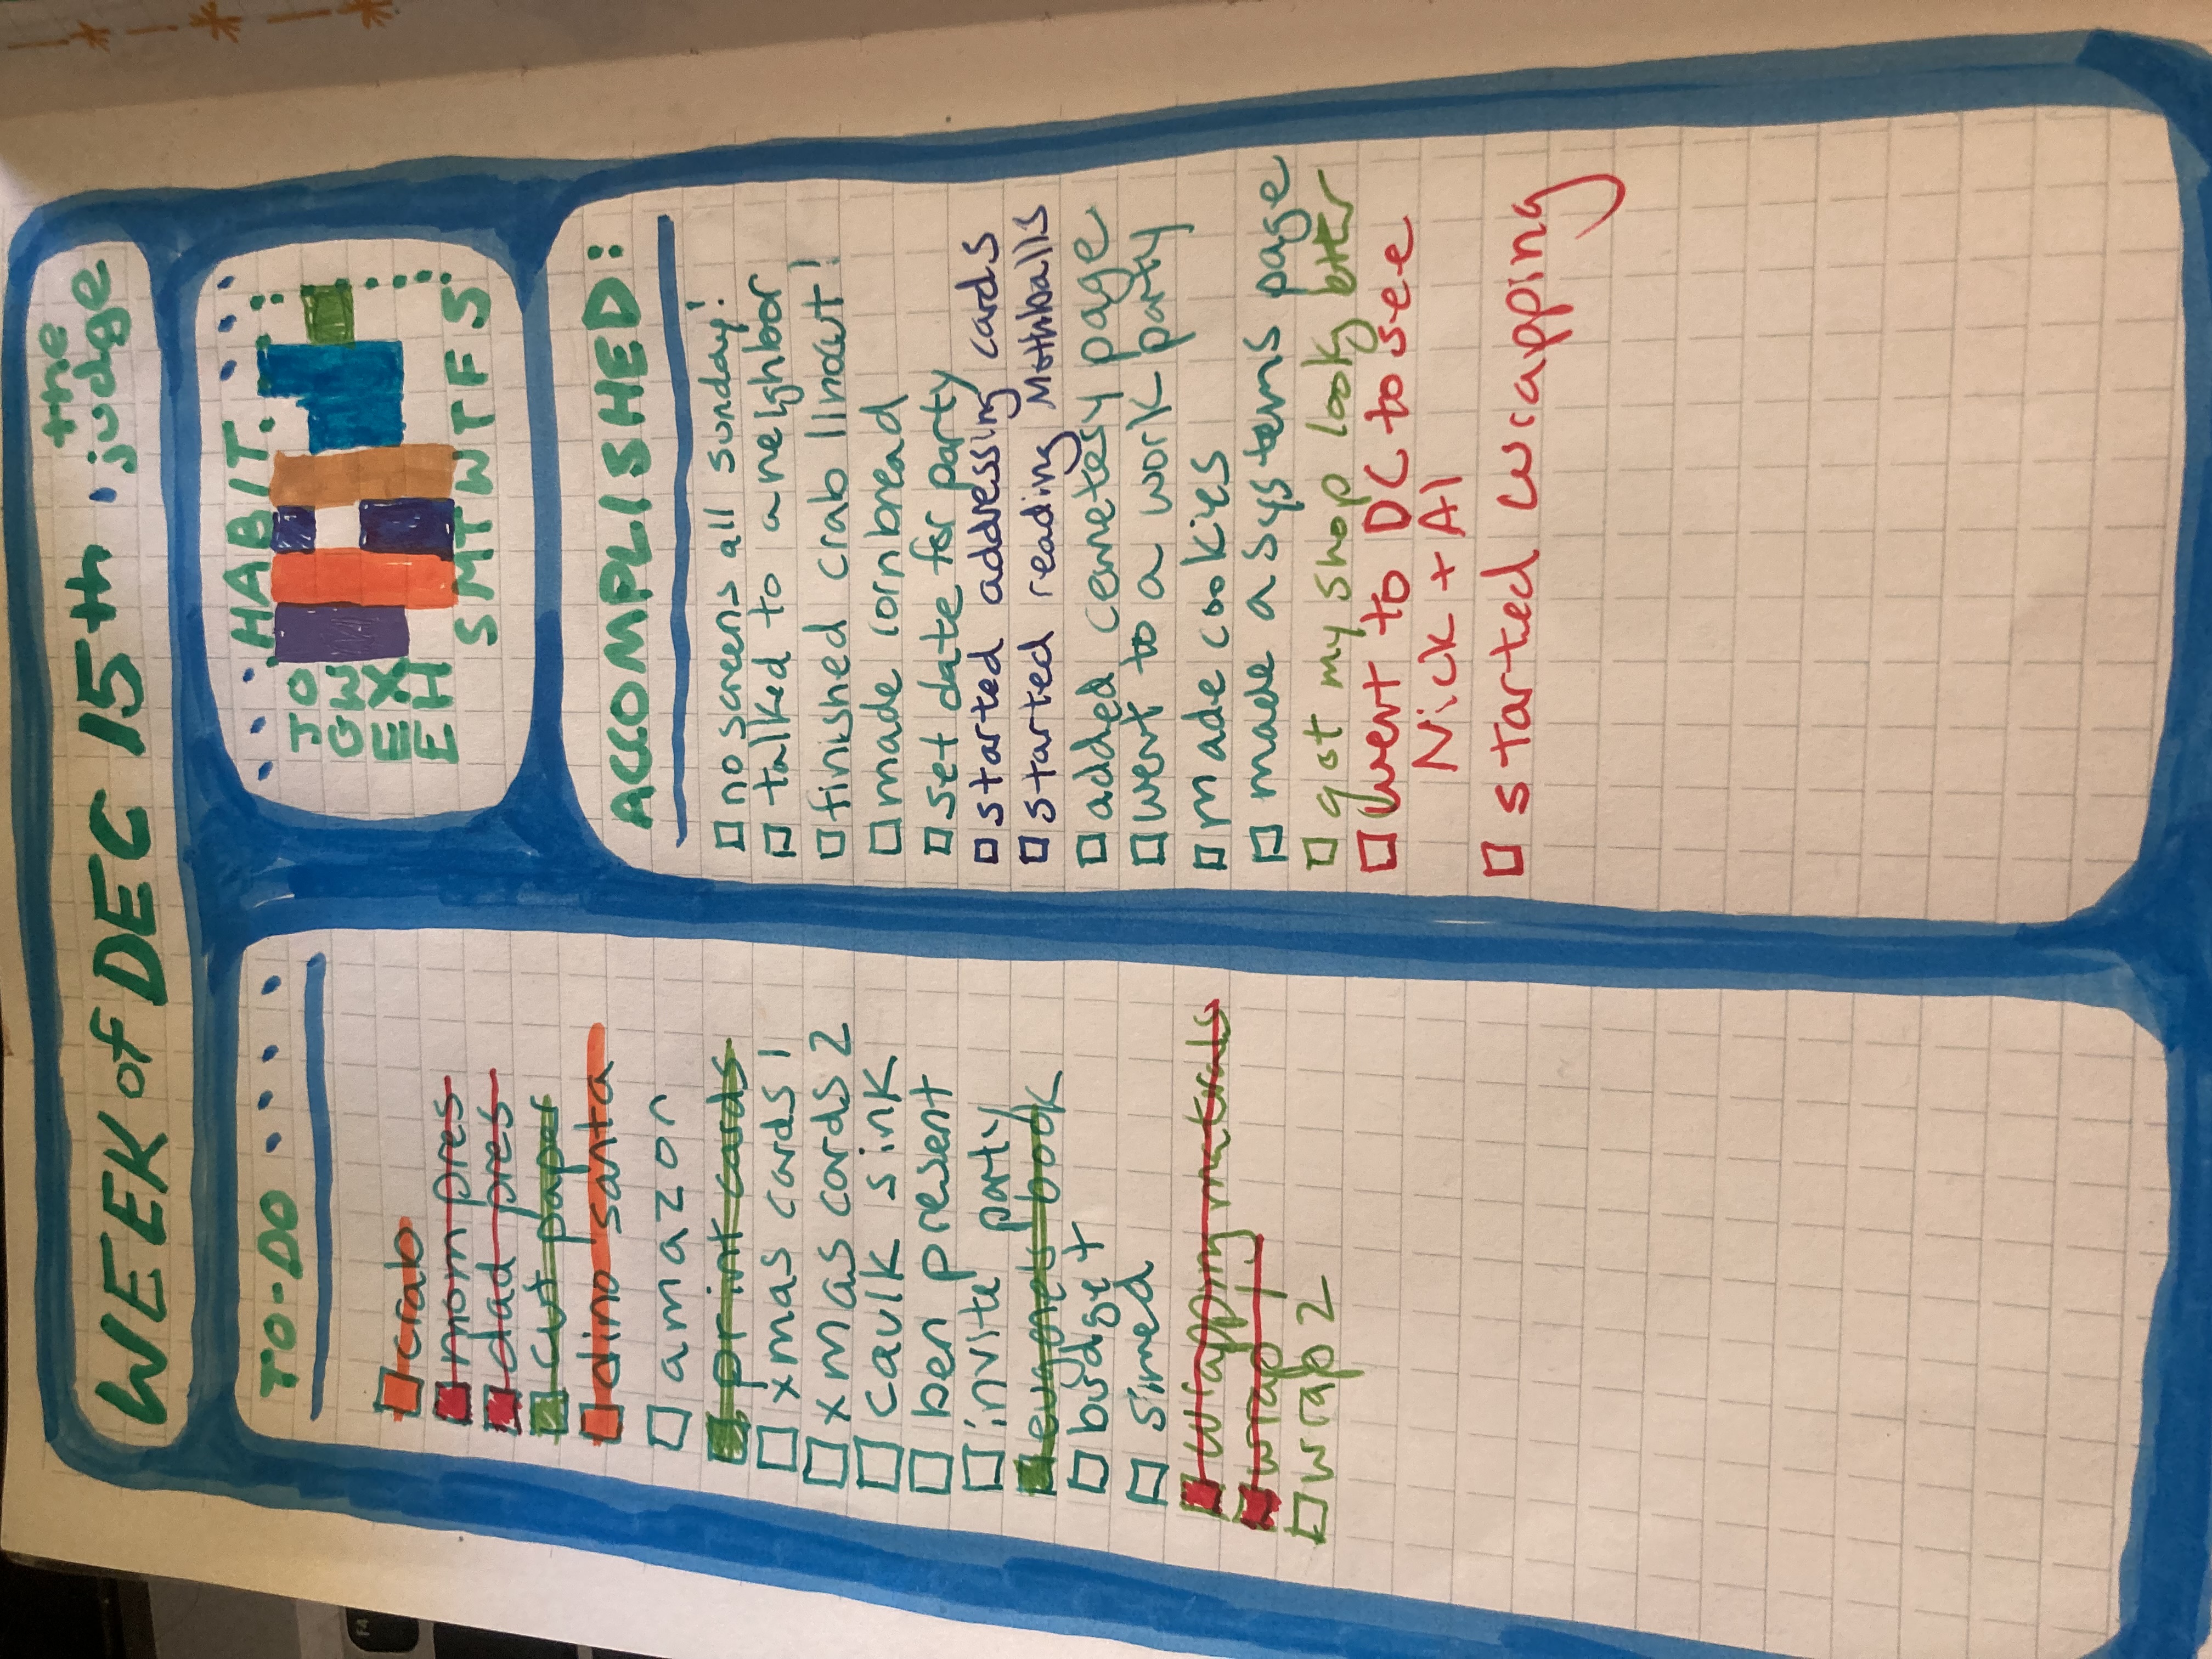 WEEK of DEC 15th . the judge
TO-DO
crab
mom pres
dad pres
cut paper
dino santa
amazon
print cards
xmas cards 1
xmas cards 2
caulk sink
ben present
invite party
book
budget
simed
wrapping
wrap 1
wrap 2
HABIT.
JO
GW
EX
EH
S M T W T F S
ACCOMPLISHED:
no screens all sunday!
talked to a neighbor
finished crab linocut!
made cornbread
set date for party
started addressing cards
started reading Mothballs
added cemetesy page
went to a work party
made cookies
made a systems page
got my shop look bttr
went to DC to see
Nick + Al
started wrapping
F4